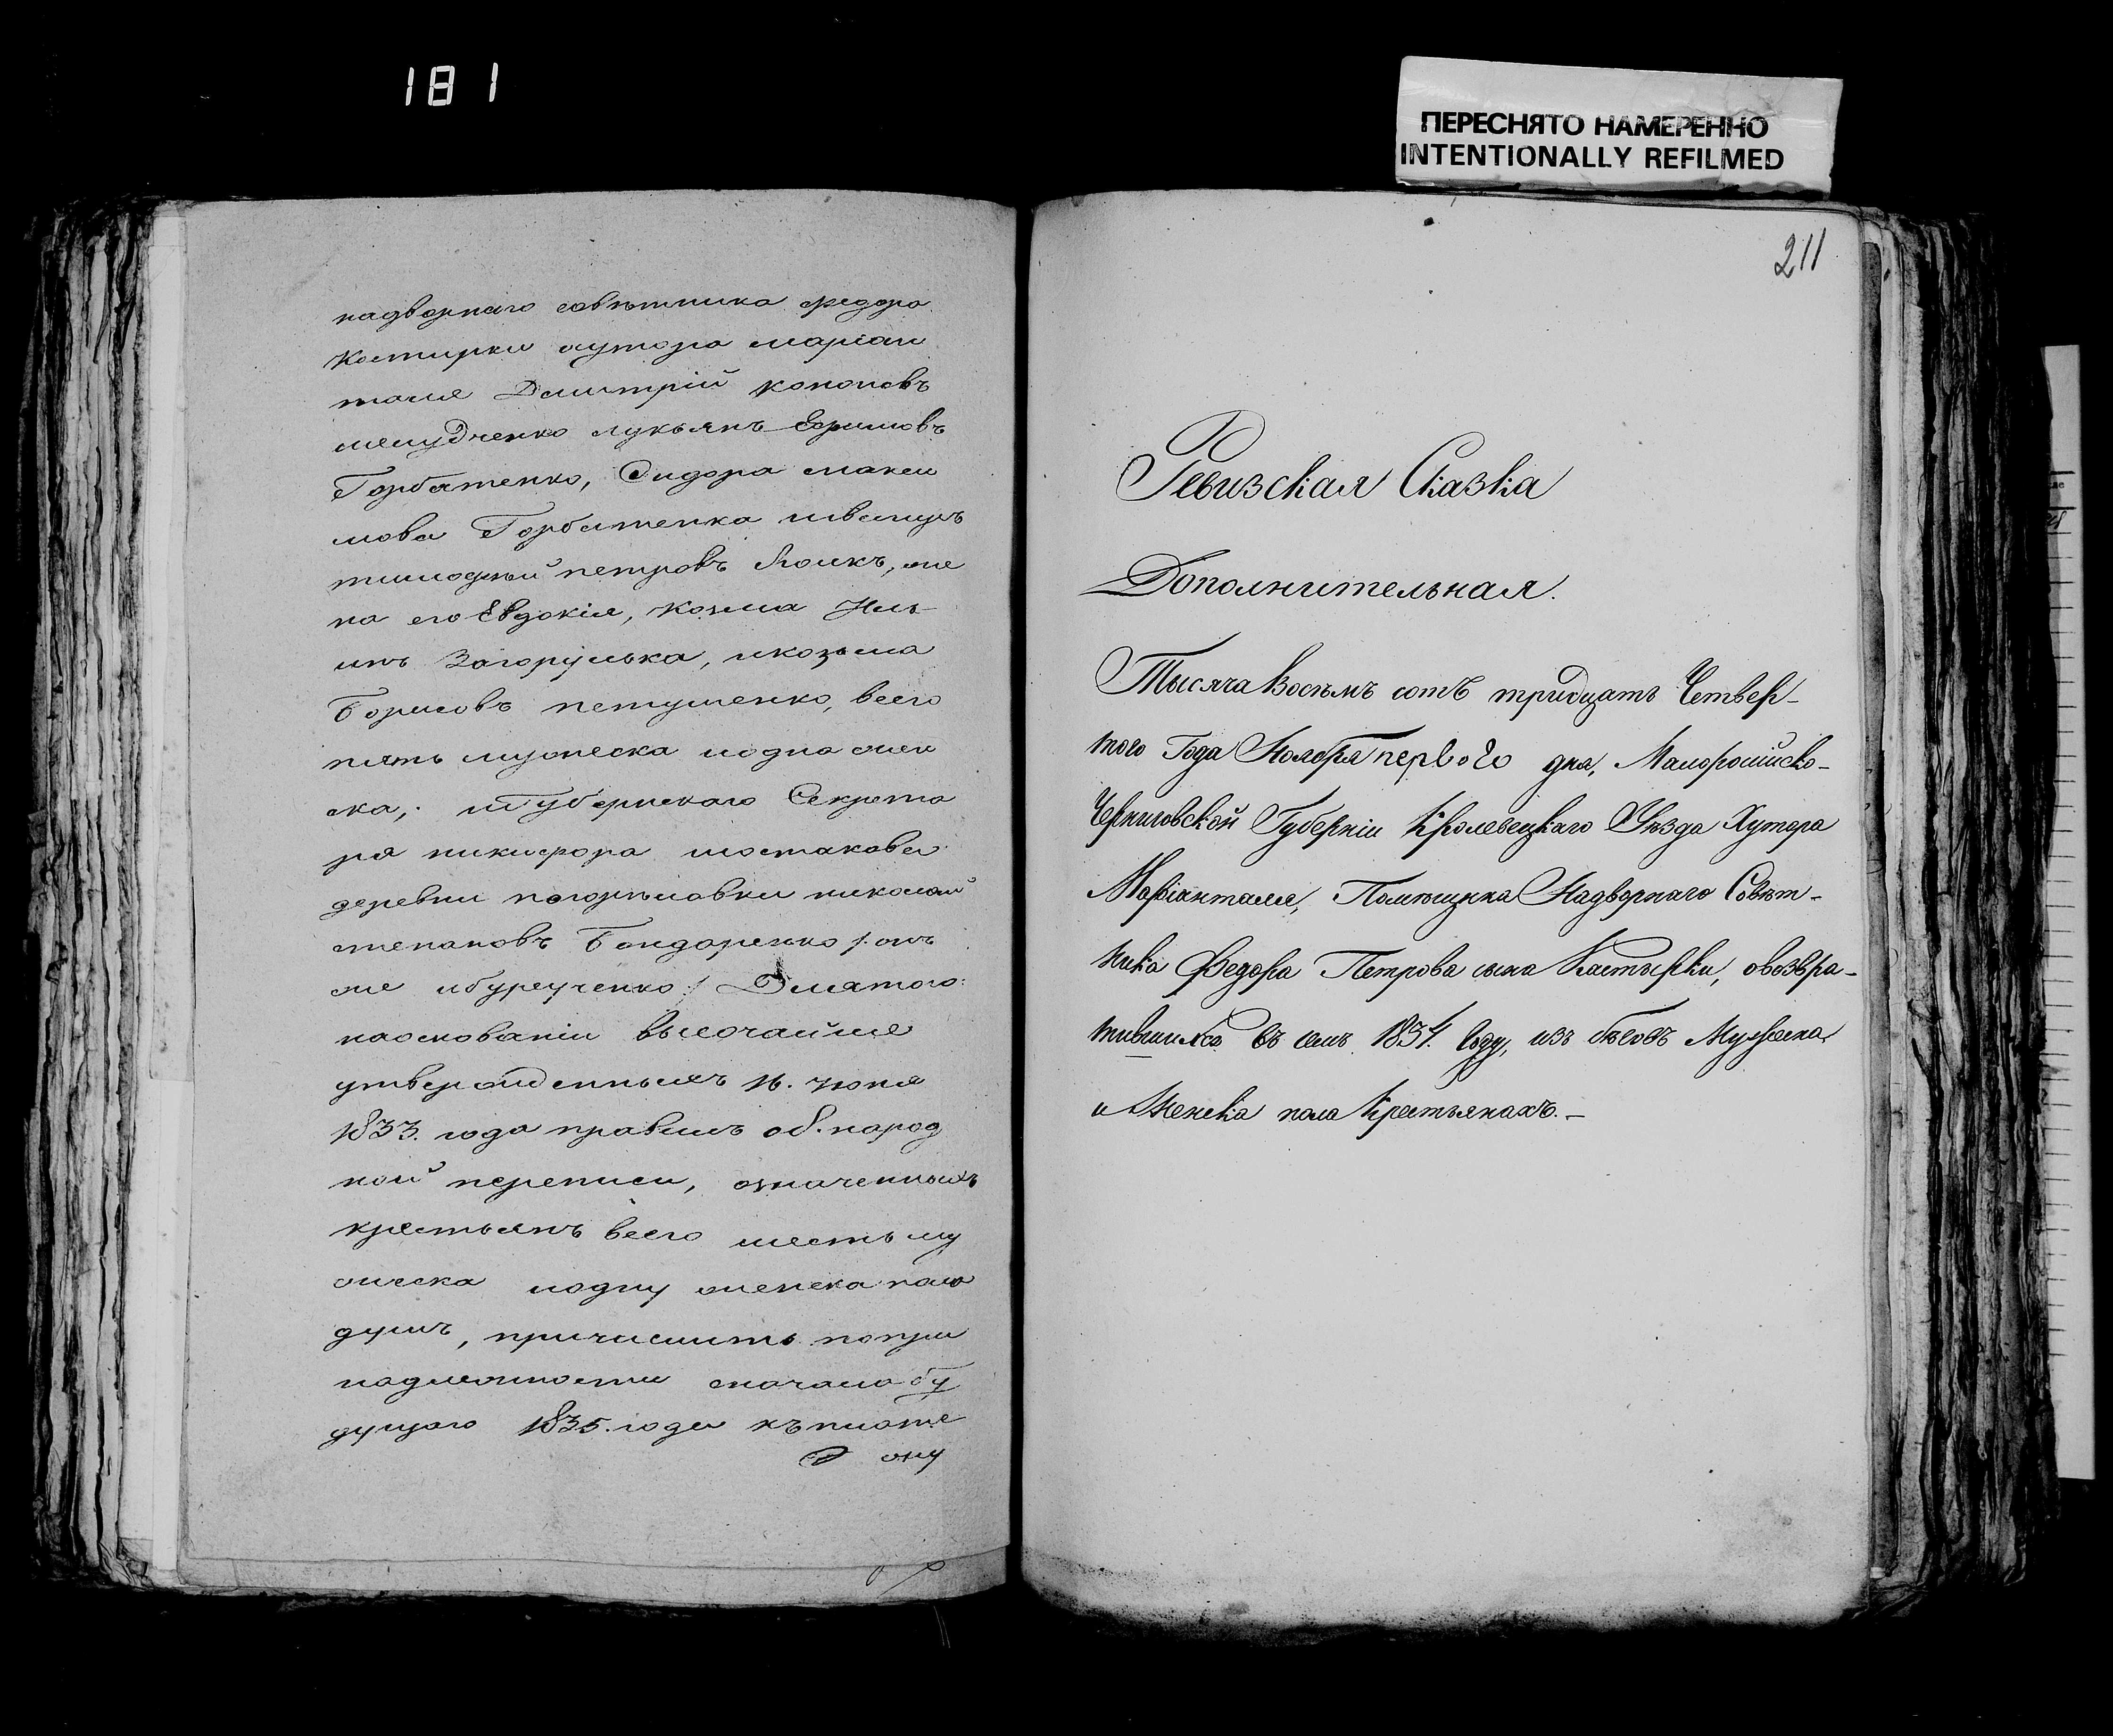 181
ПЕРЕСНЯТО НАМЕРЕННО
INTENTIONALLY REFILMED
надворнаго совѣтника федора
Костирки хутора маріан
таля Дмитрій кононовъ
лукьянъ Ефимовъ
Горбатенко, Сидора макси
мова Горбатенка
петровъ же
на его Евдокія, козма Иль
инъ Загорулька, икозьма
Борисовъ петушенко, всего
пять мужеска иодна жен
ска, игубернскаго Секрета
ря никифора шостакова
деревни погорѣловки николай
степановъ Бондаренко /: онъ
же :/ Длятого
наоснованіи высочайше
утвержденныхъ 16. іюня
1833. года правилъ об. народ
ной переписи, означенныхъ
крестьянъ всего шесть му
жеска иодну женска пола
душъ, причислить попри
надлежности сначала бу
дущаго 1835. года къплате
жу
211
Ревизская Сказка
Дополнительная.
Тысяча Восѣмъ сотъ тридцать Четвер-
того Года Ноября первого дня, Малоросійско-
Черниговской Губерніи Кролевецкаго Уѣзда Хутора
Маріанталя, Помѣщика Надворнаго Совѣт-
ника Федора Петрова сына Кастырки, овозвра-
тившихся въ семъ 1834. Году, изъ бѣговъ Мужеска
и Женска пола Крестьянахъ.-